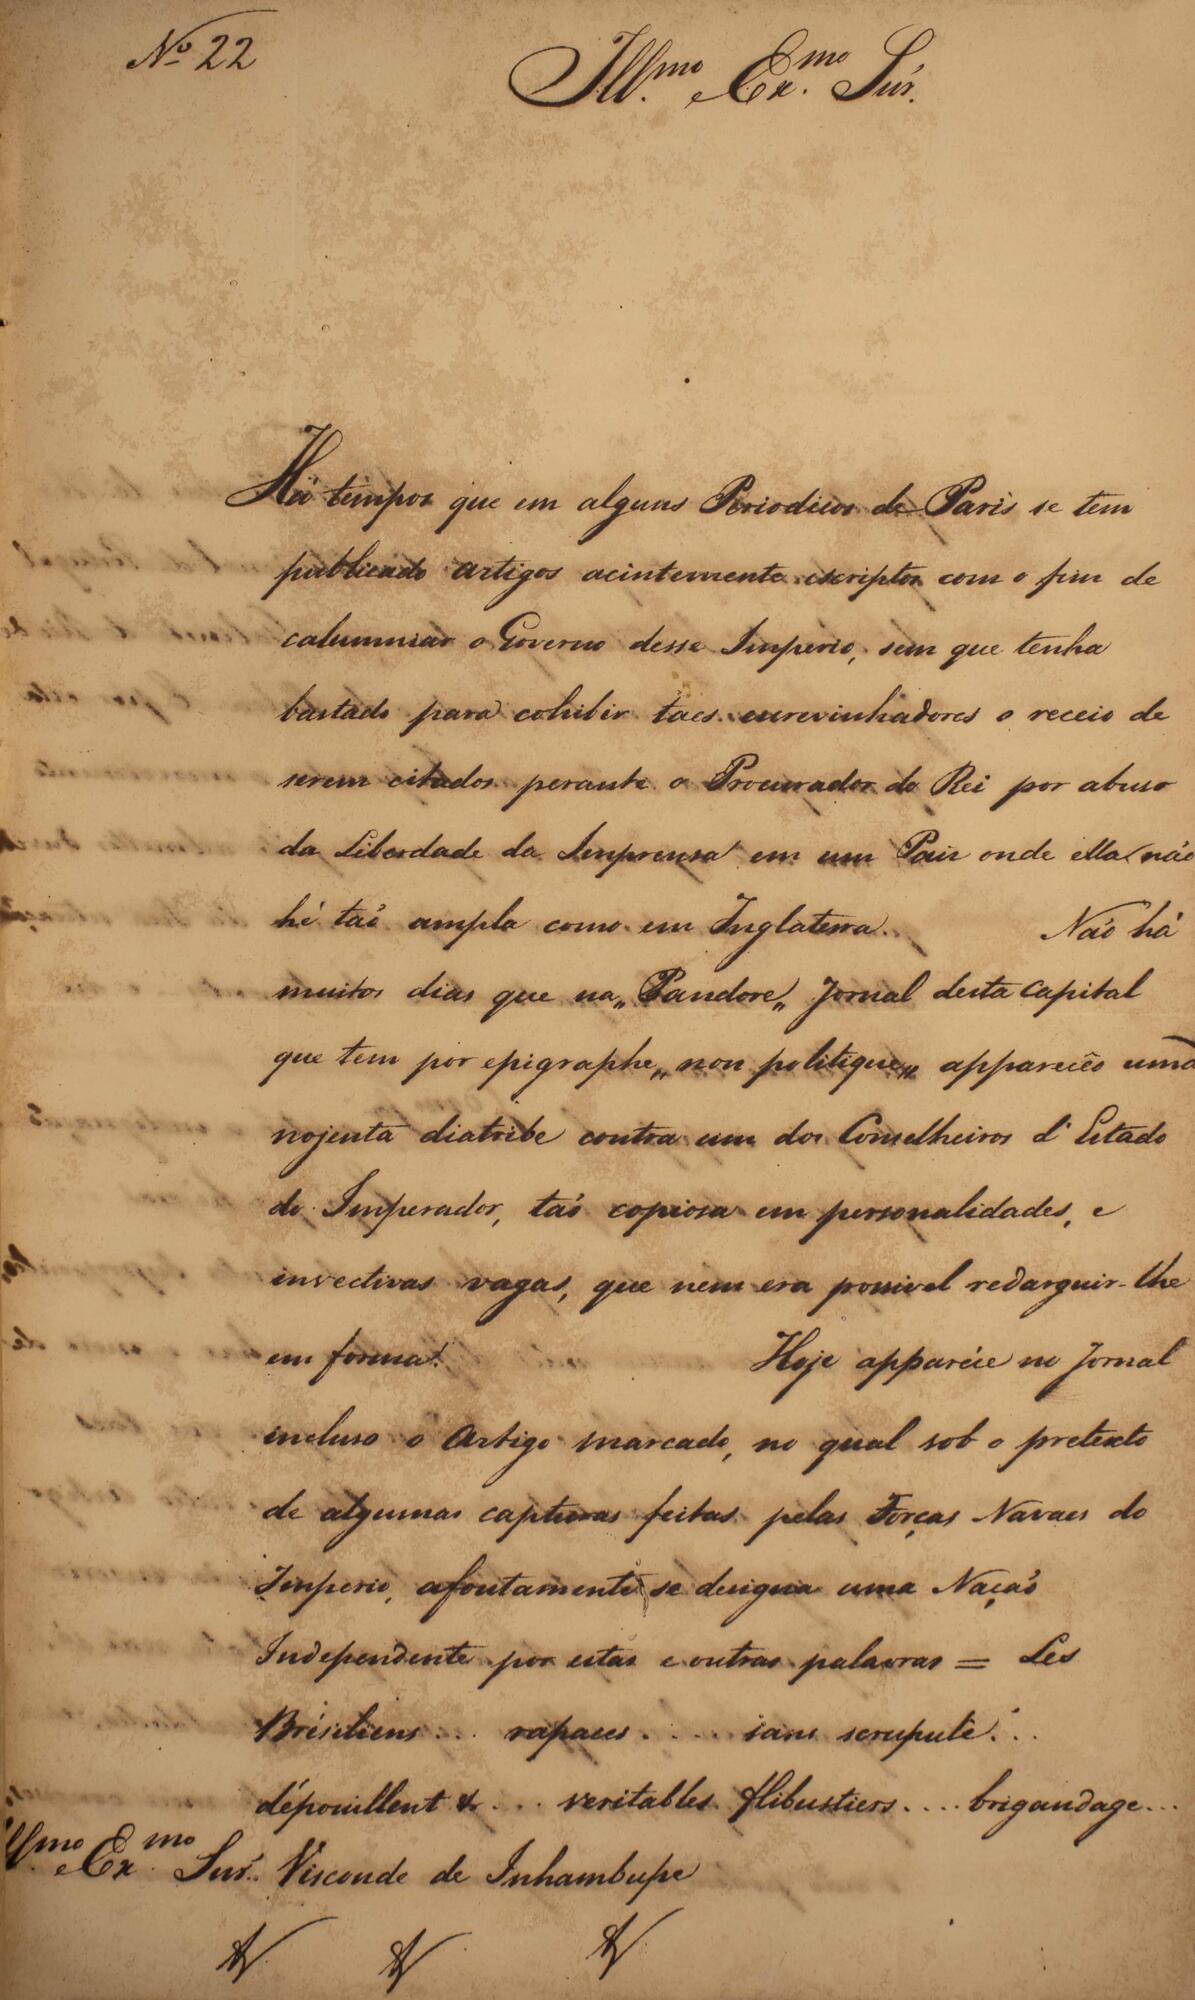 Nº 22
Ill.mo e Ex.mo Snr.
Há tempos que em alguns Periodicos de Paris se tem
publicado artigos acintemente escriptos com o fim de
calumniar o Governo desse Imperio, sem que tenha
bastado para cohibir taes escrevinhadores o receio de
serem citados perante o Procurador do Rei por abuso
da Liberdade da Imprensa em um Paiz onde ella não
hé taõ ampla como em Inglaterra. Não há
muitos dias que na „Pandore„ Jornal desta Capital
que tem por epigraphe „non politique„ appareceo uma
nojenta diatribe contra um dos Conselheiros d'Estado
do Imperador, taõ copiosa em personalidades, e
invectivas vagas, que nem era possivel redarguir-lhe
em forma. Hoje apparece no Jornal
incluso o Artigo marcado, no qual sob o pretexto
de algumas capturas feitas pelas Forças Navaes do
Imperio, afoutamente se designa uma Naçaõ
Independente por estas e outras palavras = Les
Brésiliens ... rapaces ..... sans scrupule ...
dépouillent & .... veritables flibustiers .... brigandage ...
Ill.mo e Ex.mo Snr. Visconde de Inhambupe